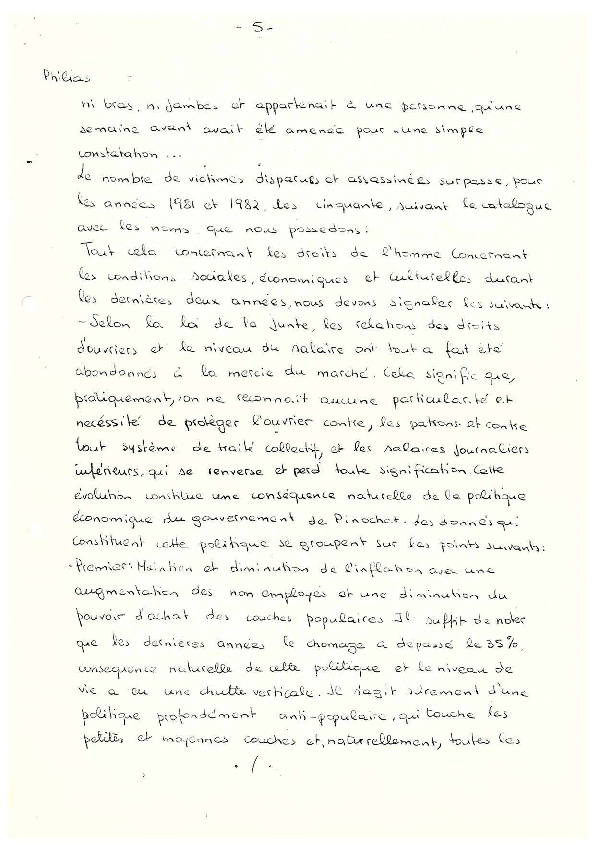 - 5 -
Philias :
ni bras, ni jambes et appartenait à une personne, qu'une
semaine avant avait été amenée pour "une simple
constatation...
Le nombre de victimes disparues et assassinées surpasse, pour
les années 1981 et 1982, les cinquante, suivant le catalogue
avec les noms que nous possedons:
Tout cela concernant les droits de l'homme Concernant
les conditions sociales, économiques et culturelles durant
les dernières deux années, nous devons signaler les suivants:
- Selon la loi de la Junte, les relations des droits
d'ouvriers et le niveau du salaire ont tout a fait été
abandonnés à la mercie du marché. Cela signific que,
pratiquement, on ne reconnait aucune particularité et
necéssité de protéger l'ouvrier contre, les patrons et contre
tout système de traité collectif, et les salaires Journaliers
inférieurs, qui se renverse et perd toute signification. Cette
évolution constitue une conséquence naturelle de la politique
économique du gouvernement de Pinochet. Les donnés qui
constituent cette politique se groupent sur les points suivants:
- Premier: Maintien et diminution de l'inflation avec une
augmentation des non employés et une diminution du
pouvoir d'achat des couches populaires Il suffit de noter
que les dernieres années le chomage a depassé le 35%,
consequence naturelle de cette politique et le niveau de
vie a eu une chutte verticale. Il s'agit sûrement d'une
politique profondément anti-populaire, qui touche les
petites et moyennes couches et, naturrellement, toutes les
. / .